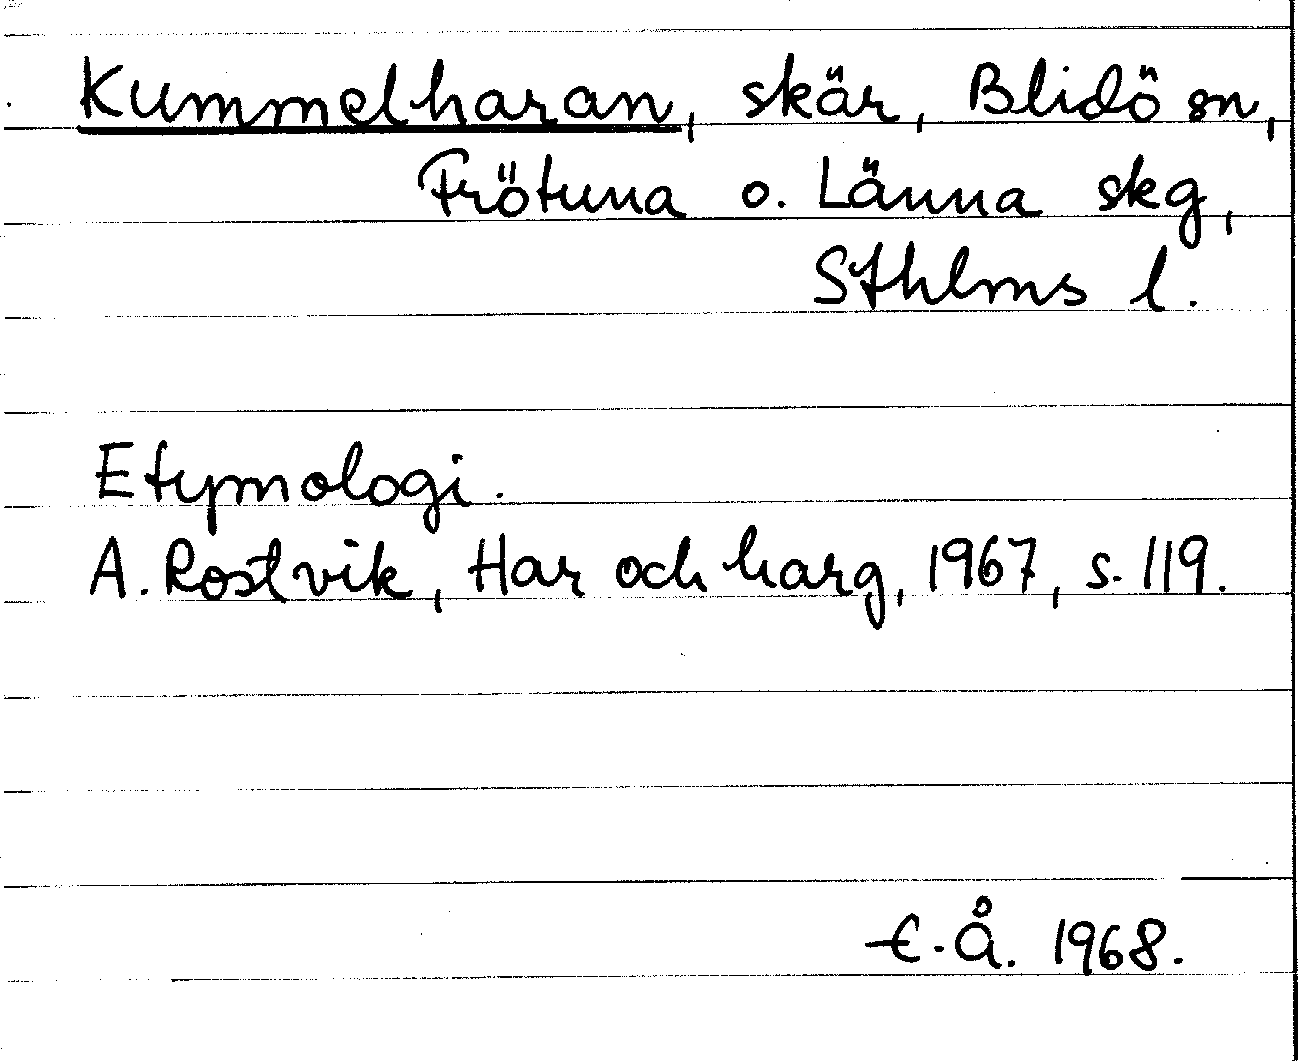 Kummelharan, skär, Blidö sn,
Frötuna o. Länna skg,
Sthlms l.
Etymologi.
A. Rostvik, Har och harg, 1967, s. 119.
E.Å. 1968.